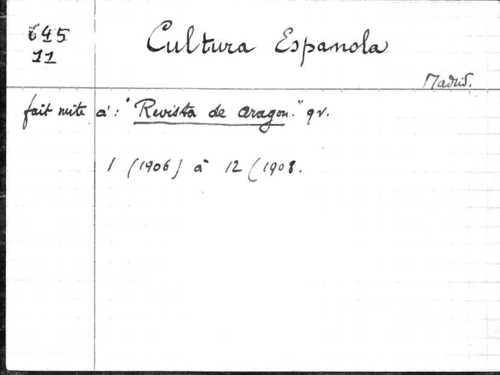 645
11
Cultura Espanola
Madrid.
fait suite à : "Revista de Aragon." qv.
1 (1906) à 12 (1908.